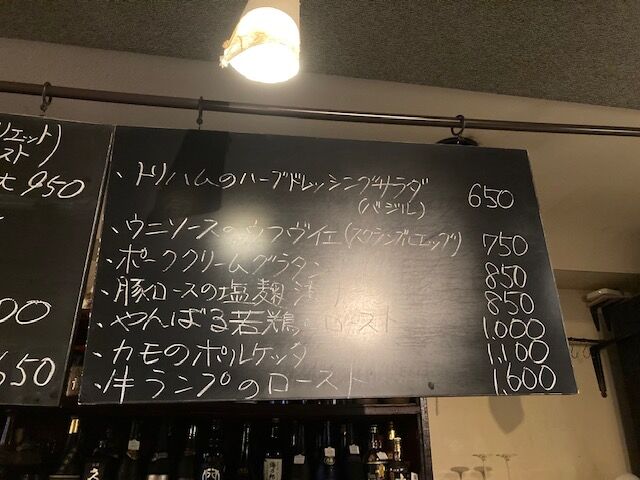 リエット)
スト
大 950
00
650
・トリハムのハーブドレッシングサラダ 650
(バジル)
・ウニソースのウフヴィエ(スクランブルエッグ) 750
・ポーククリームグラタン 850
・豚ロースの塩麹漬 850
・やんばる若鶏 ロースト 1,000
・カモのポルケッタ 1,100
・牛ランプのロースト 1,600